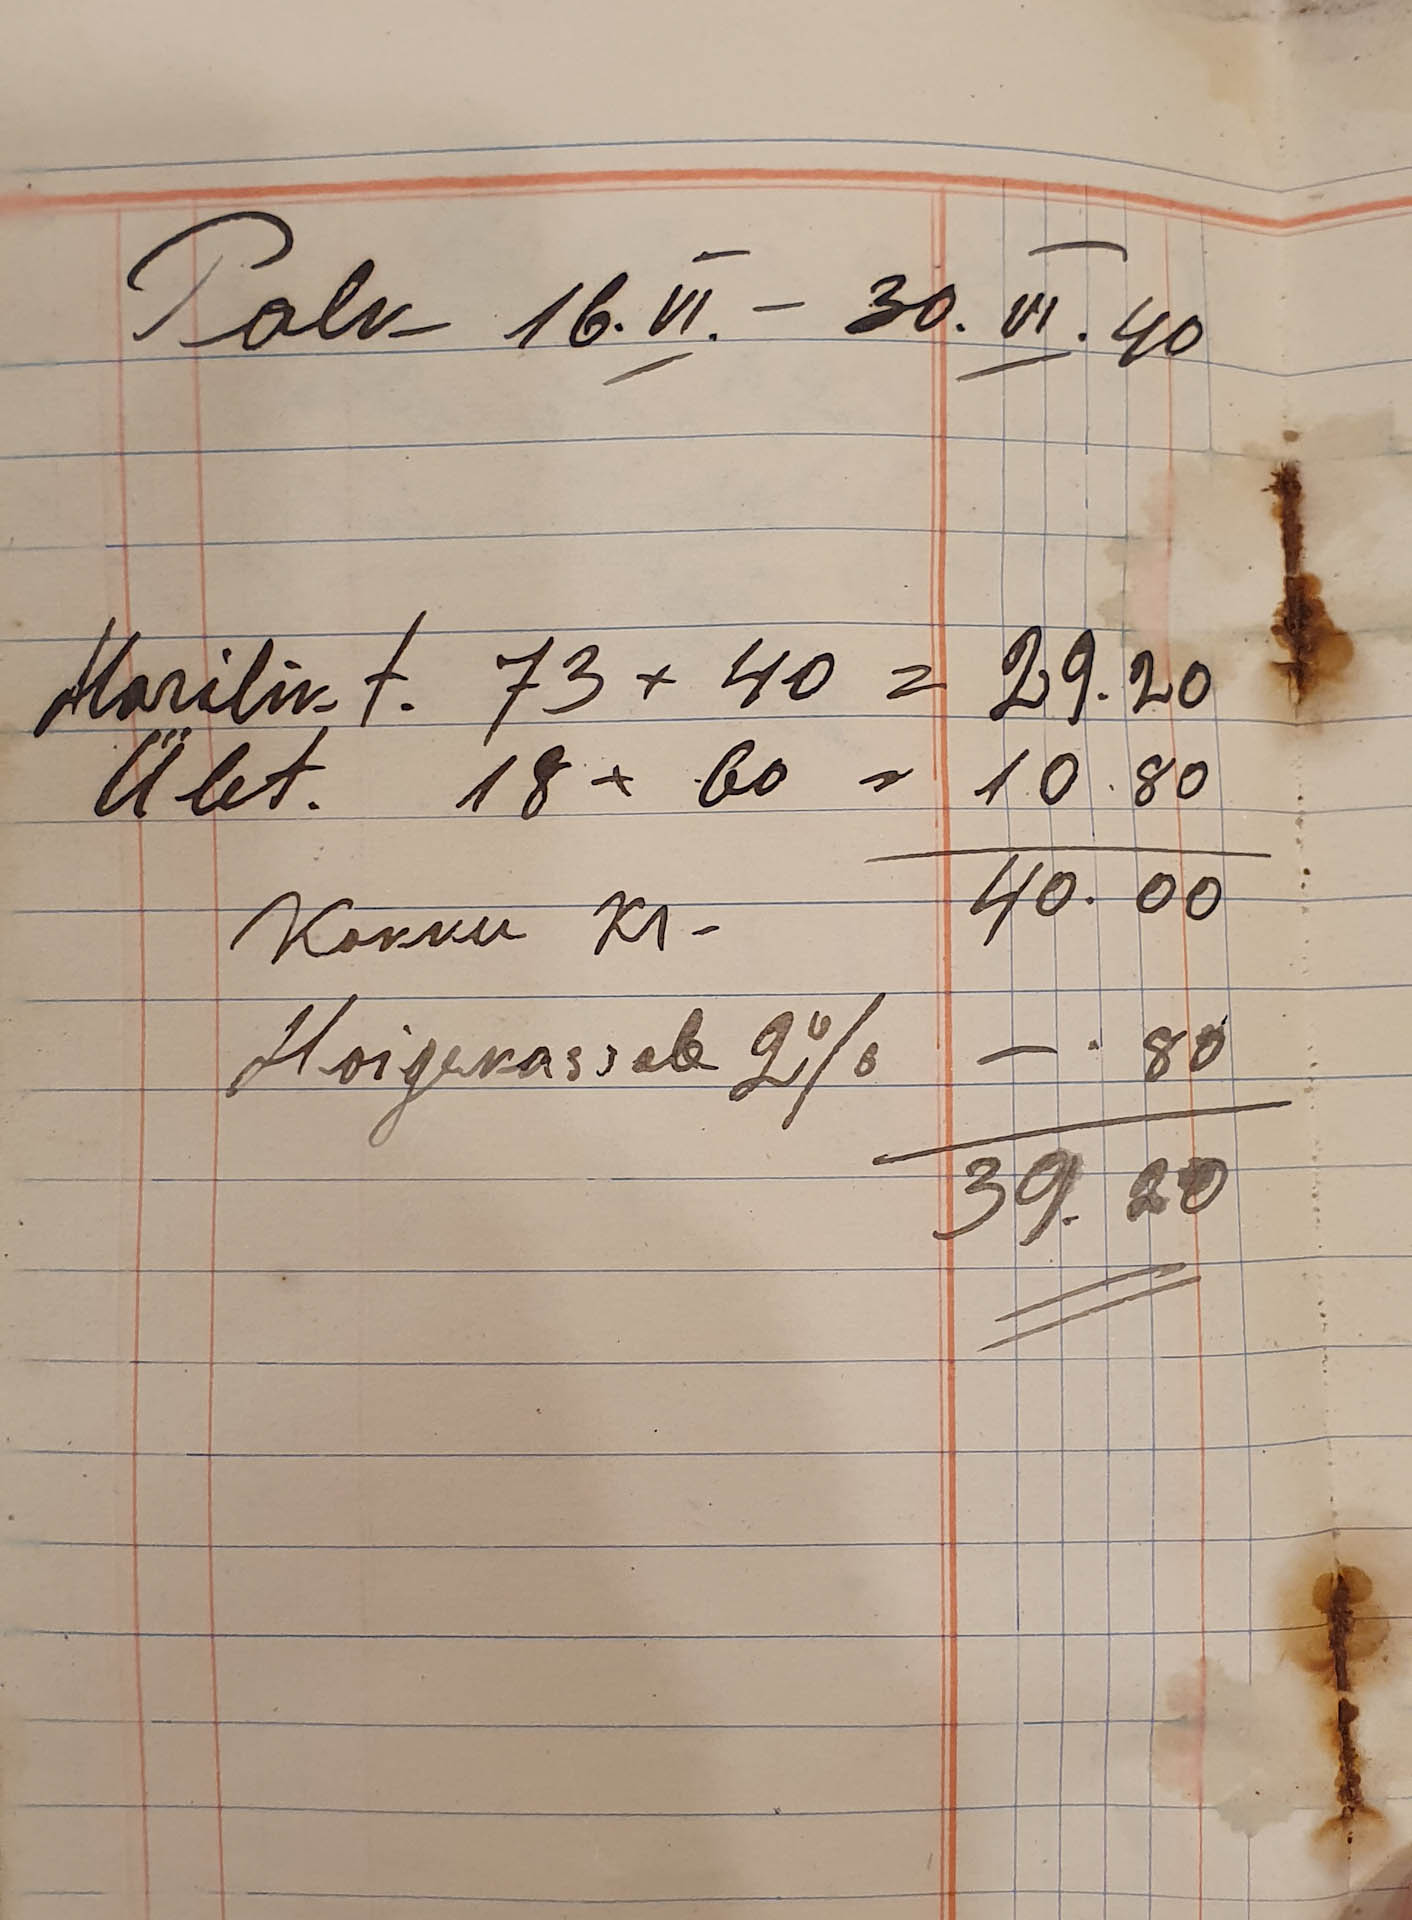 Palk 16. VI. - 30. VI. 40
Harilik t. 73 × 40 = 29.20
Ület. 18 × 60 = 10.80
Kokku Kr - 40.00
Haigekassale 2% - . 80
39.20